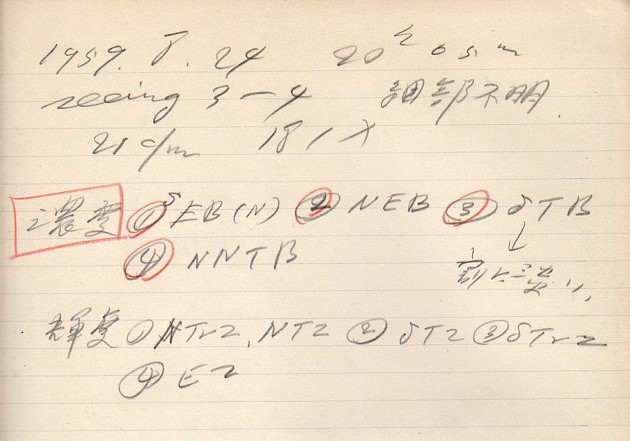 1959. 8. 24 20h 05m
seeing 3-4 細部不明.
21cm 181X
濃度 ① SEB(N) ② NEB ③ STB
④ NNTB
↓
輝度 ① NTrZ, NTZ ② STZ ③ STrZ
④ EZ